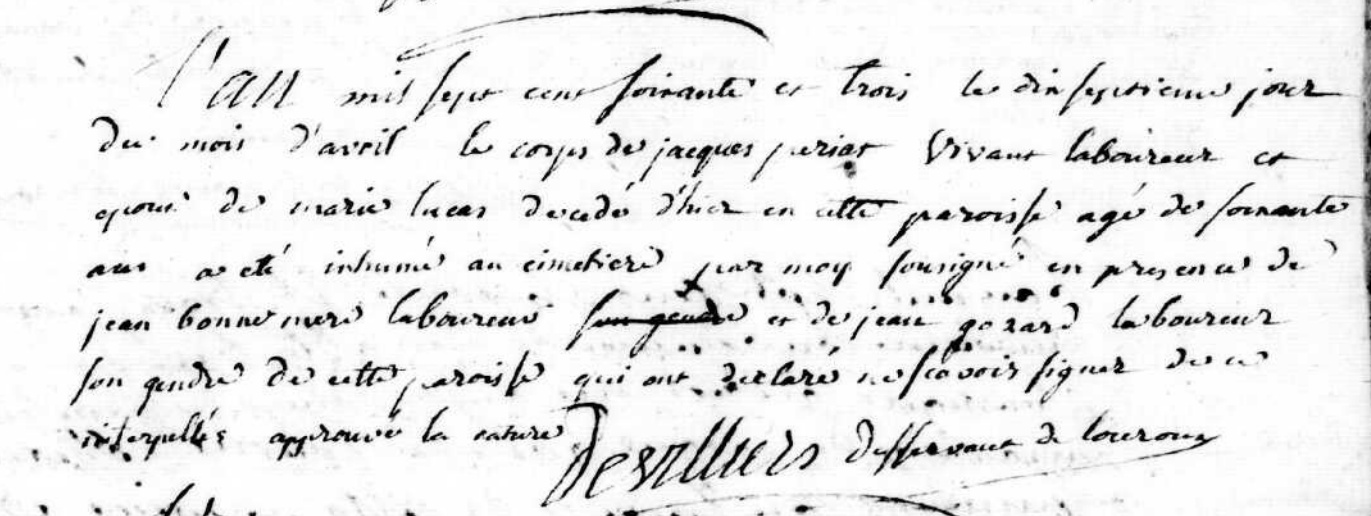 L'an mil sept cent soixante et trois le dix septieme jour
du mois d'avril le corps de jacques periat vivant laboureur et
epoux de marie lucas decedé d'hier en cette paroisse agé de soixante
ans a eté inhumé au cimetiere par moy sousigné en presence de
jean bonnemere laboureur son gendre et de jean gozard laboureur
son gendre de cette paroisse qui ont declaré ne scavoir signer de ce
interpellés approuvé la rature Devilliers desservant de louroux